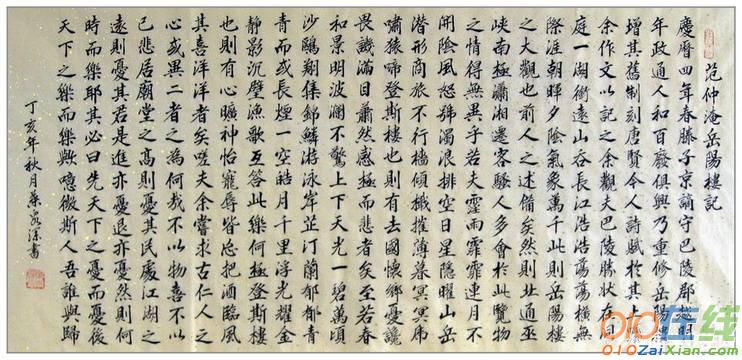 范仲淹岳陽樓記
慶曆四年春滕子京謫守巴陵郡越明
年政通人和百廢俱興乃重修岳陽樓
增其舊制刻唐賢今人詩賦於其上屬
余作文以記之余觀夫巴陵勝狀在洞
庭一湖銜遠山吞長江浩浩蕩蕩橫無
際涯朝暉夕陰氣象萬千此則岳陽樓
之大觀也前人之述備矣然則北通巫
峽南極瀟湘遷客騷人多會於此覽物
之情得無異乎若夫霪雨霏霏連月不
開陰風怒號濁浪排空日星隱曜山岳
潛形商旅不行檣傾檝摧薄暮冥冥虎
嘯猿啼登斯樓也則有去國懷鄉憂讒
畏譏滿目蕭然感極而悲者矣至若春
和景明波瀾不驚上下天光一碧萬頃
沙鷗翔集錦鱗游泳岸芷汀蘭郁郁青
青而或長煙一空皓月千里浮光耀金
靜影沉璧漁歌互答此樂何極登斯樓
也則有心曠神怡寵辱皆忘把酒臨風
其喜洋洋者矣嗟夫余嘗求古仁人之
心或異二者之為何哉不以物喜不以
己悲居廟堂之高則憂其民處江湖之
遠則憂其君是進亦憂退亦憂然則何
時而樂耶其必曰先天下之憂而憂後
天下之樂而樂歟噫微斯人吾誰與歸
丁亥年秋月書
在线
010ZaiXian.Com